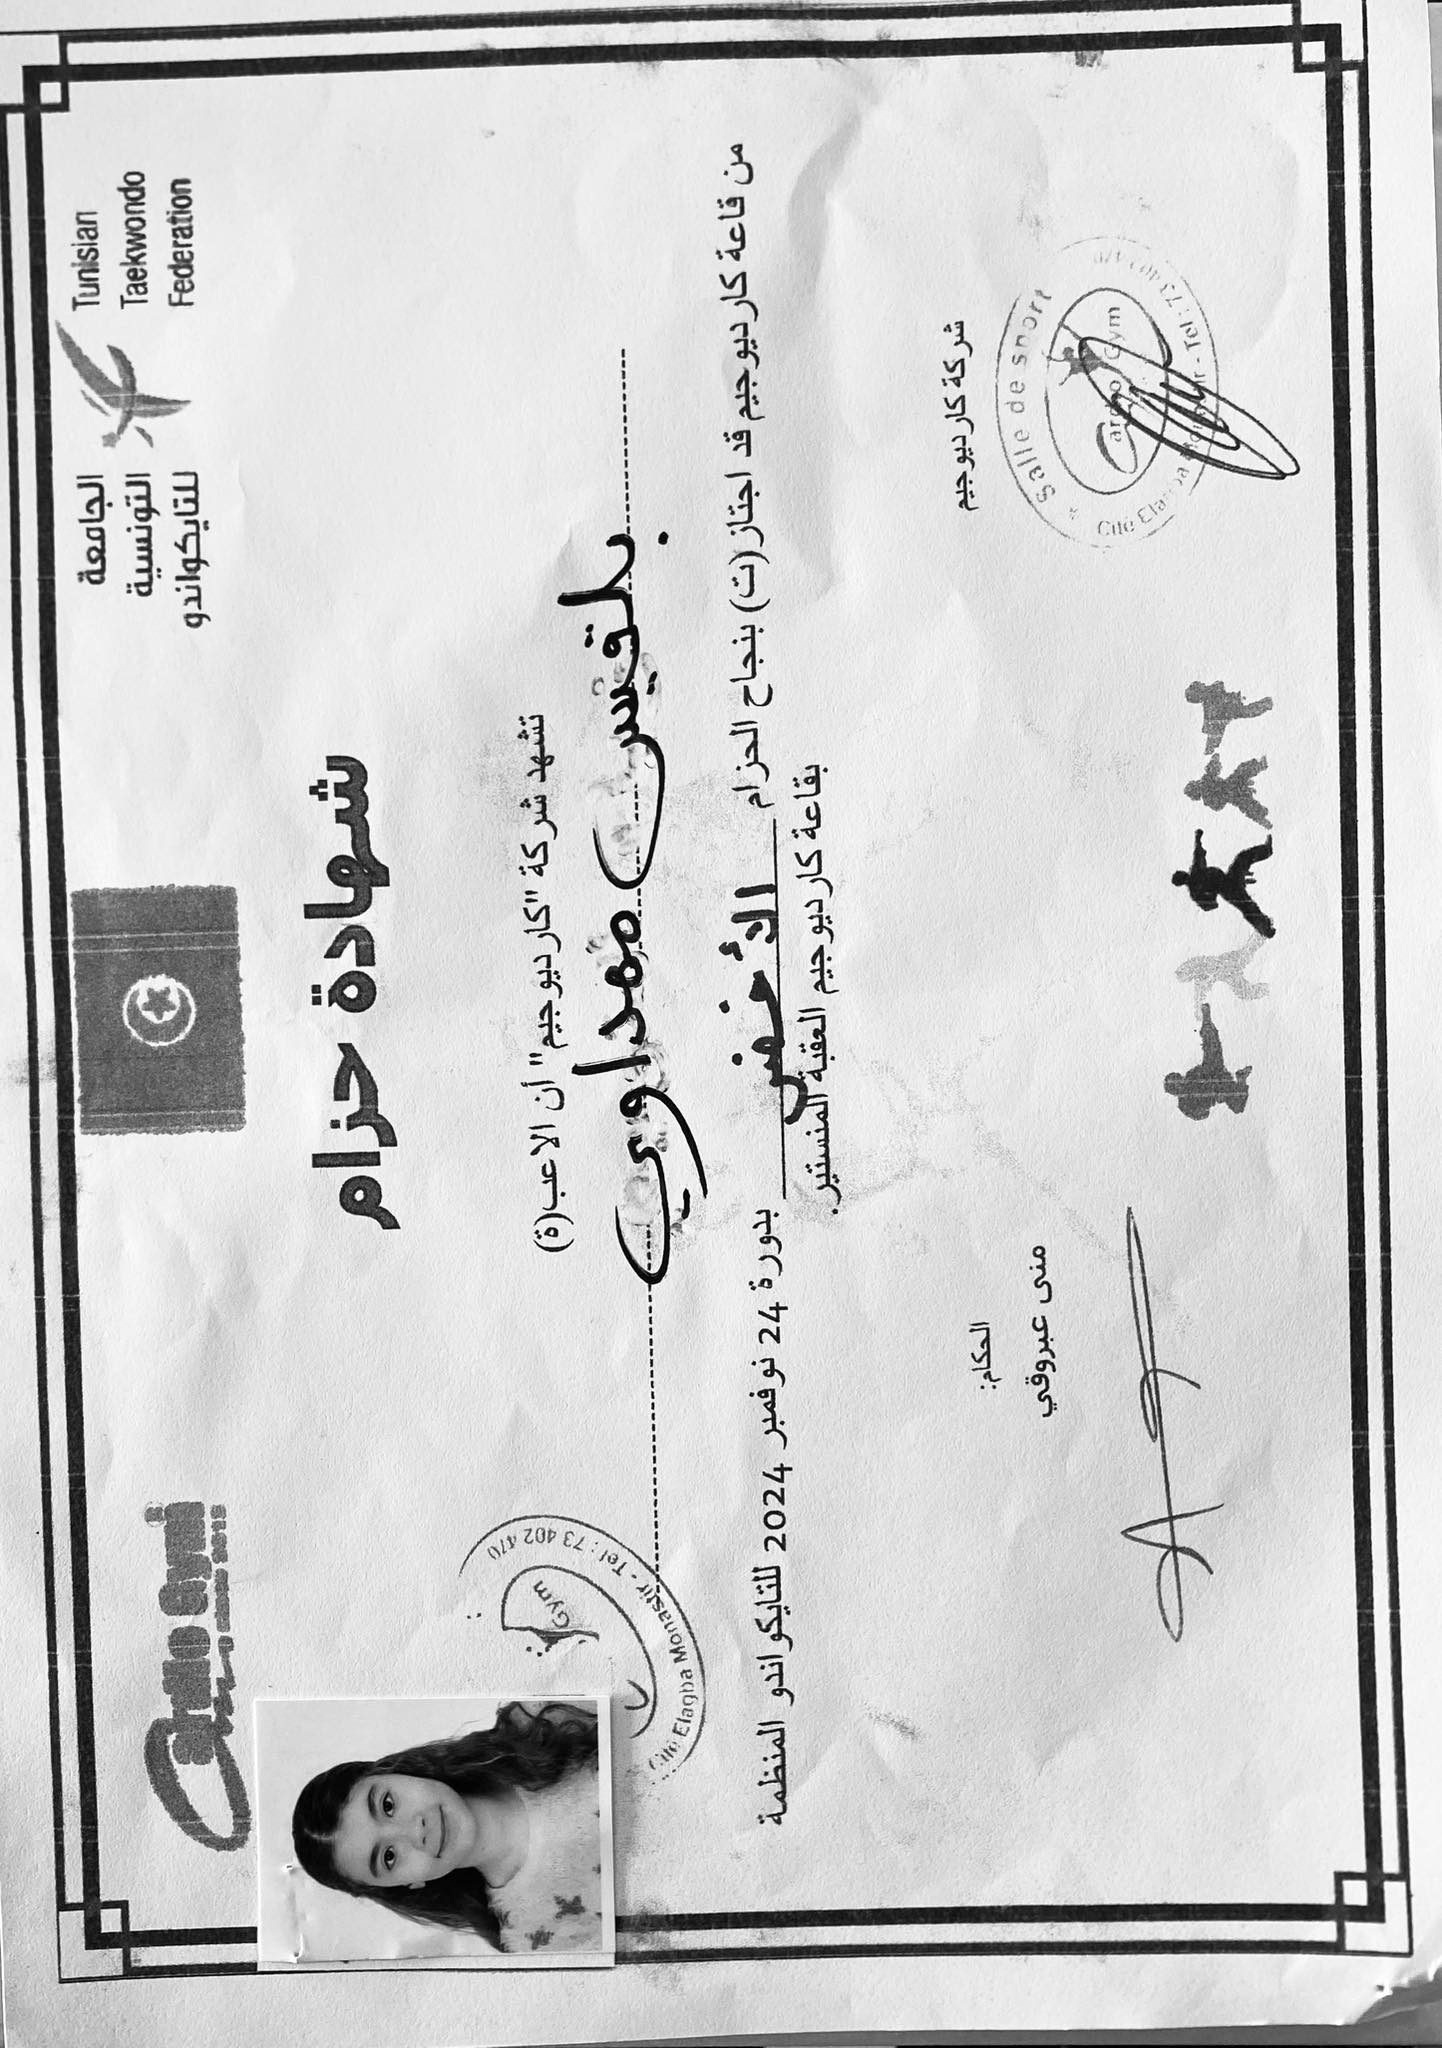 الجامعة
التونسية
للتايكواندو
Tunisian
Taekwondo
Federation
Cardio Gym
شهادة حزام
تشهد شركة "كارديوجيم" أن الاعب(ة)
بلقيس مهداوي
من قاعة كارديوجيم قد اجتاز(ت) بنجاح الحزام الأخضر بدورة 24 نوفمبر 2024 للتايكواندو المنظمة
بقاعة كارديوجيم العقبة المنستير.
Gym
Cité Elagba Monastir - Tel : 73 402 470
شركة كارديوجيم
الحكام:
منى عبروقي
Salle de sport
Cardio Gym
Cité Elagba Monastir - Tel : 73 402 470